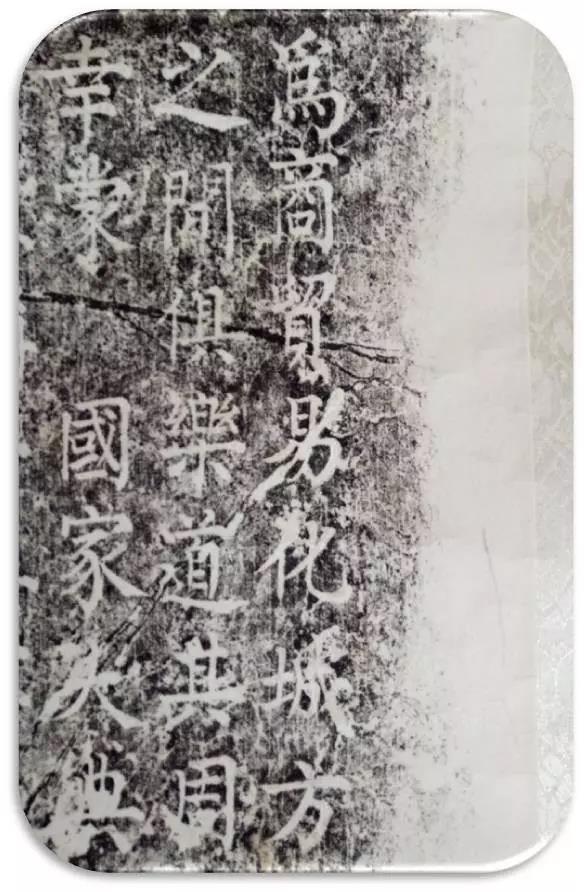 為商貿易花城方
之間俱樂道其周
幸蒙國家大典